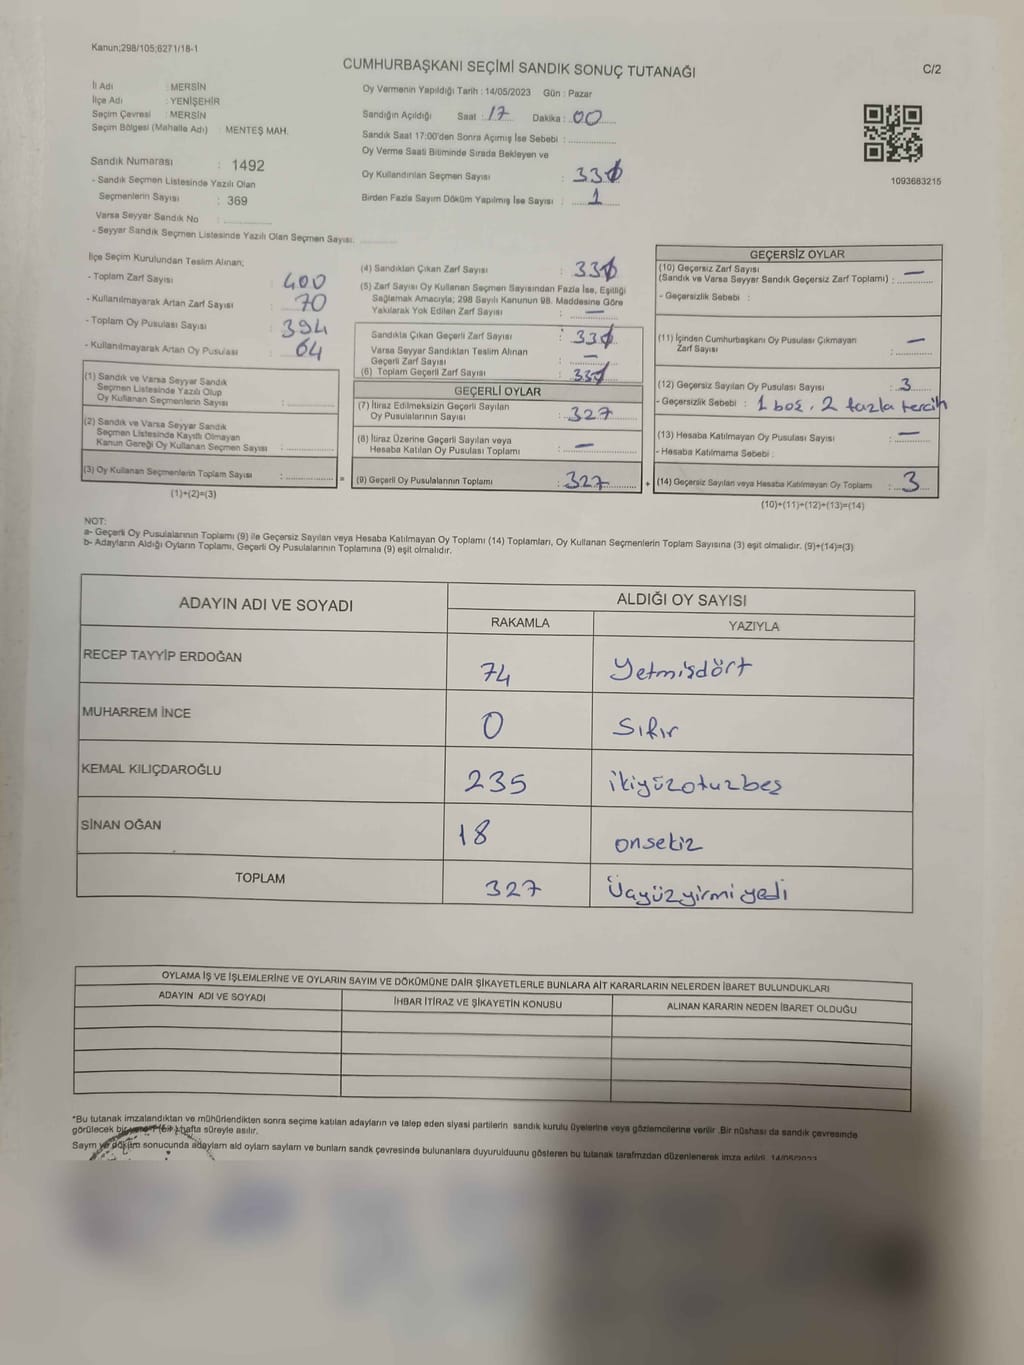 Kanun;298/105;6271/18-1
CUMHURBAŞKANI SEÇİMİ SANDIK SONUÇ TUTANAĞI
C/2
İl Adı : MERSİN
İlçe Adı : YENİŞEHİR
Seçim Çevresi : MERSİN
Seçim Bölgesi (Mahalle Adı) : MENTEŞ MAH.
Oy Vermenin Yapıldığı Tarih : 14/05/2023 Gün : Pazar
Sandığın Açıldığı Saat : 17 Dakika : 00
Sandık Saat 17:00'den Sonra Açımış İse Sebebi :
Oy Verme Saati Bitiminde Sırada Bekleyen ve
Oy Kullandırılan Seçmen Sayısı : 330
Birden Fazla Sayım Döküm Yapılmış İse Sayısı : 1
1093683215
Sandık Numarası : 1492
- Sandık Seçmen Listesinde Yazılı Olan
Seçmenlerin Sayısı : 369
Varsa Seyyar Sandık No :
- Seyyar Sandık Seçmen Listesinde Yazılı Olan Seçmen Sayısı:
İlçe Seçim Kurulundan Teslim Alınan;
- Toplam Zarf Sayısı : 400
- Kullanılmayarak Artan Zarf Sayısı : 70
- Toplam Oy Pusulası Sayısı : 394
- Kullanılmayarak Artan Oy Pusulası : 64
(1) Sandık ve Varsa Seyyar Sandık
Seçmen Listesinde Yazılı Olup
Oy Kullanan Seçmenlerin Sayısı :
(2) Sandık ve Varsa Seyyar Sandık
Seçmen Listesinde Kayıtlı Olmayan
Kanun Gereği Oy Kullanan Seçmen Sayısı :
(3) Oy Kullanan Seçmenlerin Toplam Sayısı :
(1)+(2)=(3)
(4) Sandıktan Çıkan Zarf Sayısı : 330
(5) Zarf Sayısı Oy Kullanan Seçmen Sayısından Fazla İse, Eşitliği
Sağlamak Amacıyla; 298 Sayılı Kanunun 98. Maddesine Göre
Yakılarak Yok Edilen Zarf Sayısı : —
Sandıkta Çıkan Geçerli Zarf Sayısı : 330
Varsa Seyyar Sandıktan Teslim Alınan
Geçerli Zarf Sayısı : —
(6) Toplam Geçerli Zarf Sayısı : 330
GEÇERLİ OYLAR
(7) İtiraz Edilmeksizin Geçerli Sayılan
Oy Pusulalarının Sayısı : 327
(8) İtiraz Üzerine Geçerli Sayılan veya
Hesaba Katılan Oy Pusulası Toplamı : —
= (9) Geçerli Oy Pusulalarının Toplamı : 327
GEÇERSİZ OYLAR
(10) Geçersiz Zarf Sayısı
(Sandık ve Varsa Seyyar Sandık Geçersiz Zarf Toplamı) : —
- Geçersizlik Sebebi :
(11) İçinden Cumhurbaşkanı Oy Pusulası Çıkmayan
Zarf Sayısı : —
(12) Geçersiz Sayılan Oy Pusulası Sayısı : 3
- Geçersizlik Sebebi : 1 boş, 2 fazla tercih
(13) Hesaba Katılmayan Oy Pusulası Sayısı : —
- Hesaba Katılmama Sebebi :
+ (14) Geçersiz Sayılan veya Hesaba Katılmayan Oy Toplamı : 3
(10)+(11)+(12)+(13)=(14)
NOT:
a- Geçerli Oy Pusulalarının Toplamı (9) ile Geçersiz Sayılan veya Hesaba Katılmayan Oy Toplamı (14) Toplamları, Oy Kullanan Seçmenlerin Toplam Sayısına (3) eşit olmalıdır. (9)+(14)=(3)
b- Adayların Aldığı Oyların Toplamı, Geçerli Oy Pusulalarının Toplamına (9) eşit olmalıdır.
ADAYIN ADI VE SOYADI
ALDIĞI OY SAYISI
RAKAMLA YAZIYLA
RECEP TAYYİP ERDOĞAN 74 Yetmişdört
MUHARREM İNCE 0 Sıfır
KEMAL KILIÇDAROĞLU 235 ikiyüzotuzbeş
SİNAN OĞAN 18 onsekiz
TOPLAM 327 Üçyüzyirmiyedi
OYLAMA İŞ VE İŞLEMLERİNE VE OYLARIN SAYIM VE DÖKÜMÜNE DAİR ŞİKAYETLERLE BUNLARA AİT KARARLARIN NELERDEN İBARET BULUNDUKLARI
ADAYIN ADI VE SOYADI İHBAR İTİRAZ VE ŞİKAYETİN KONUSU ALINAN KARARIN NEDEN İBARET OLDUĞU
*Bu tutanak imzalandıktan ve mühürlendikten sonra seçime katılan adayların ve talep eden siyasi partilerin sandık kurulu üyelerine veya gözlemcilerine verilir .Bir nüshası da sandık çevresinde
görülecek bir yere 1 (bir) hafta süreyle asılır.
Sayım ve döküm sonucunda adayların ald oylam saylam ve bunların sandk çevresinde bulunanlara duyurulduunu gösteren bu tutanak tarafmzdan düzenlenerek imza edildi. 14/05/2023